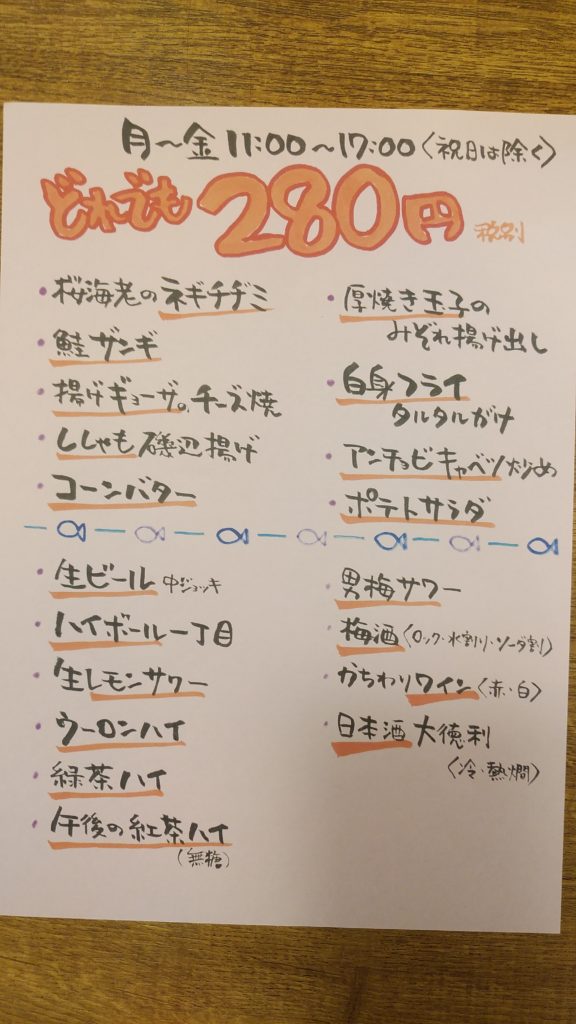 月～金 11:00～17:00〈祝日は除く〉
どれでも 280円 税別
・桜海老のネギチヂミ
・鮭ザンギ
・揚げギョーザ。チーズ焼
・ししゃも磯辺揚げ
・コーンバター
・厚焼き玉子の
みぞれ揚げ出し
・白身フライ
タルタルがけ
・アンチョビキャベツ炒め
・ポテトサラダ
・生ビール 中ジョッキ
・ハイボール一丁目
・生レモンサワー
・ウーロンハイ
・緑茶ハイ
・午後の紅茶ハイ
(無糖)
・男梅サワー
・梅酒〈ロック・水割り・ソーダ割〉
・かちわりワイン〈赤・白〉
・日本酒 大徳利
〈冷・熱燗〉